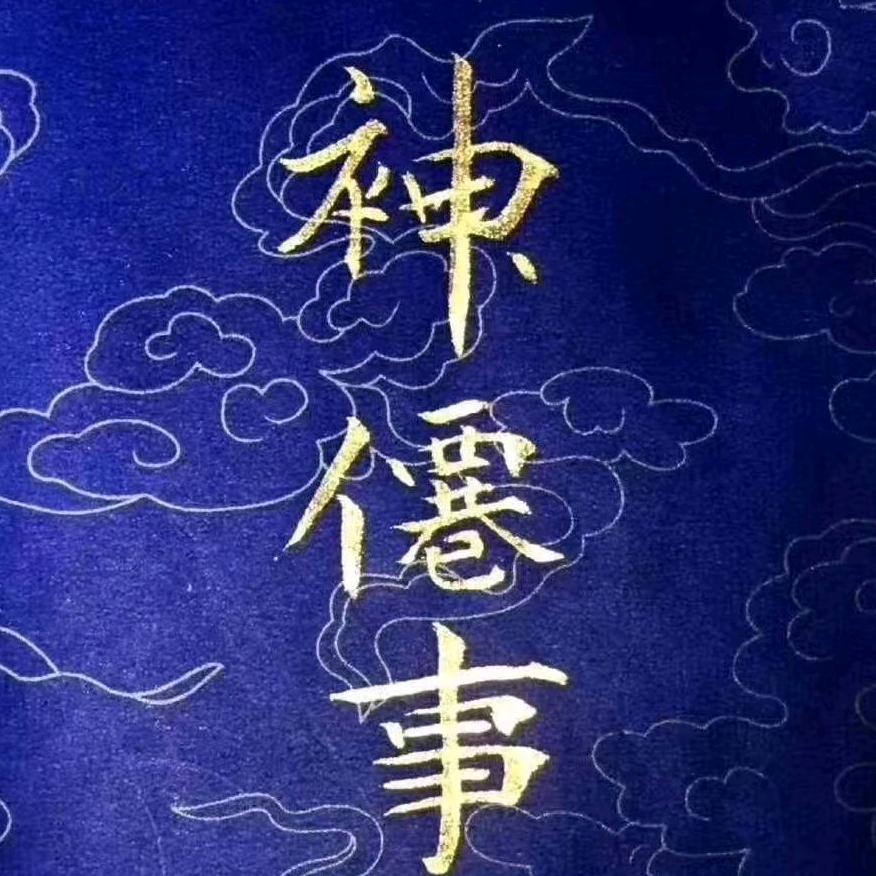 神僊事